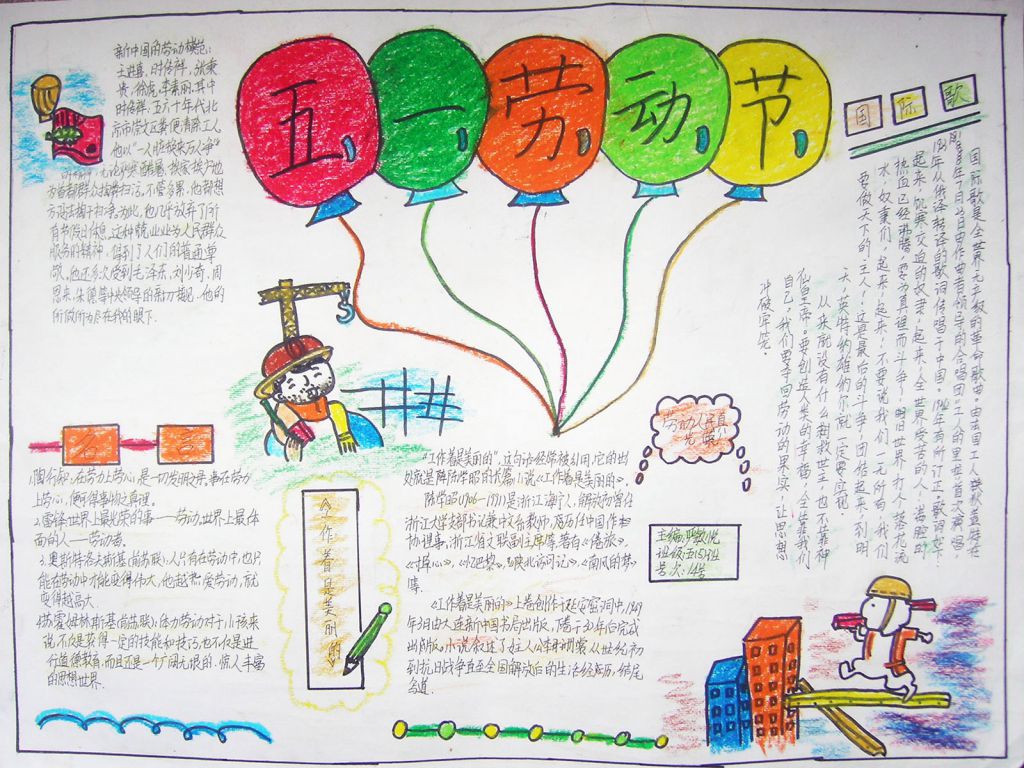 五一劳动节
新中国的劳动模范:
王进喜,时传祥,张秉
贵,徐虎,李素丽.其中
时传祥,五六十年代北
他以“一人脏换来万人净”
方设法掏干扫净.为此,他几乎放弃了所
有节假日休息.这种兢兢业业为人民群众
服务的精神,得到了人们的普遍尊
敬.他还多次受到毛泽东,刘少奇,周
恩来,朱德等中央领导的亲切接见.他的
所做所为尽在我的眼下.
国际歌
国际歌是全世界无产级的革命歌曲.
起来,饥寒交迫的奴隶,起来,全世界受苦的人,满腔的
热血已经沸腾,要为真理而斗争!旧世界打个落花流
水,奴隶们,起来,起来!不要说我们一无所有,我们
要做天下的主人!这是最后的斗争,团结起来,到明
天,英特纳雄纳尔就一定要实现.
从来就没有什么救世主,也不靠神
仙皇帝.要创造人类的幸福,全靠我们
自己,我们要夺回劳动的果实,让思想
冲破牢笼.
名言
1.陶行知:在劳力上劳心,是一切发明之母.事事在劳力
上劳心,便可得事物之真理.
2.雷锋:世界上最光荣的事——劳动,世界上最体
面的人——劳动者.
3.奥斯特洛夫斯基(前苏联):人只有在劳动中,也只
能在劳动中才能变得伟大,他越热爱劳动,就
变得越高大.
4.苏霍姆林斯基(前苏联):体力劳动对于小孩来
说,不仅是获得一定的技能和技巧,也不仅是进
行道德教育,而且还是一个广阔无垠的,惊人丰富
的思想世界.
《工作着是美丽的》
“工作着是美丽的”,这句话经常被引用,它的出
处就是陈学昭的长篇小说《工作着是美丽的》.
陈学昭(1906—1991)是浙江海宁人,解放后曾任
浙江大学支部书记兼中文系教师,历任中国作协
协理事,浙江省文联副主席等.著有《倦旅》、
《寸草心》、《忆巴黎》、《延安访问记》、《南风的梦》
等.
《工作着是美丽的》上卷创作于延安窑洞中,1949
年3月由大连新中国书局出版,下卷于30年后完成
出版.小说叙述了女主人公李珊裳从世纪初
到抗日战争直至全国解放后的生活经历,结尾
劳动人民真
光荣
班级:五(5)班
号次:14号